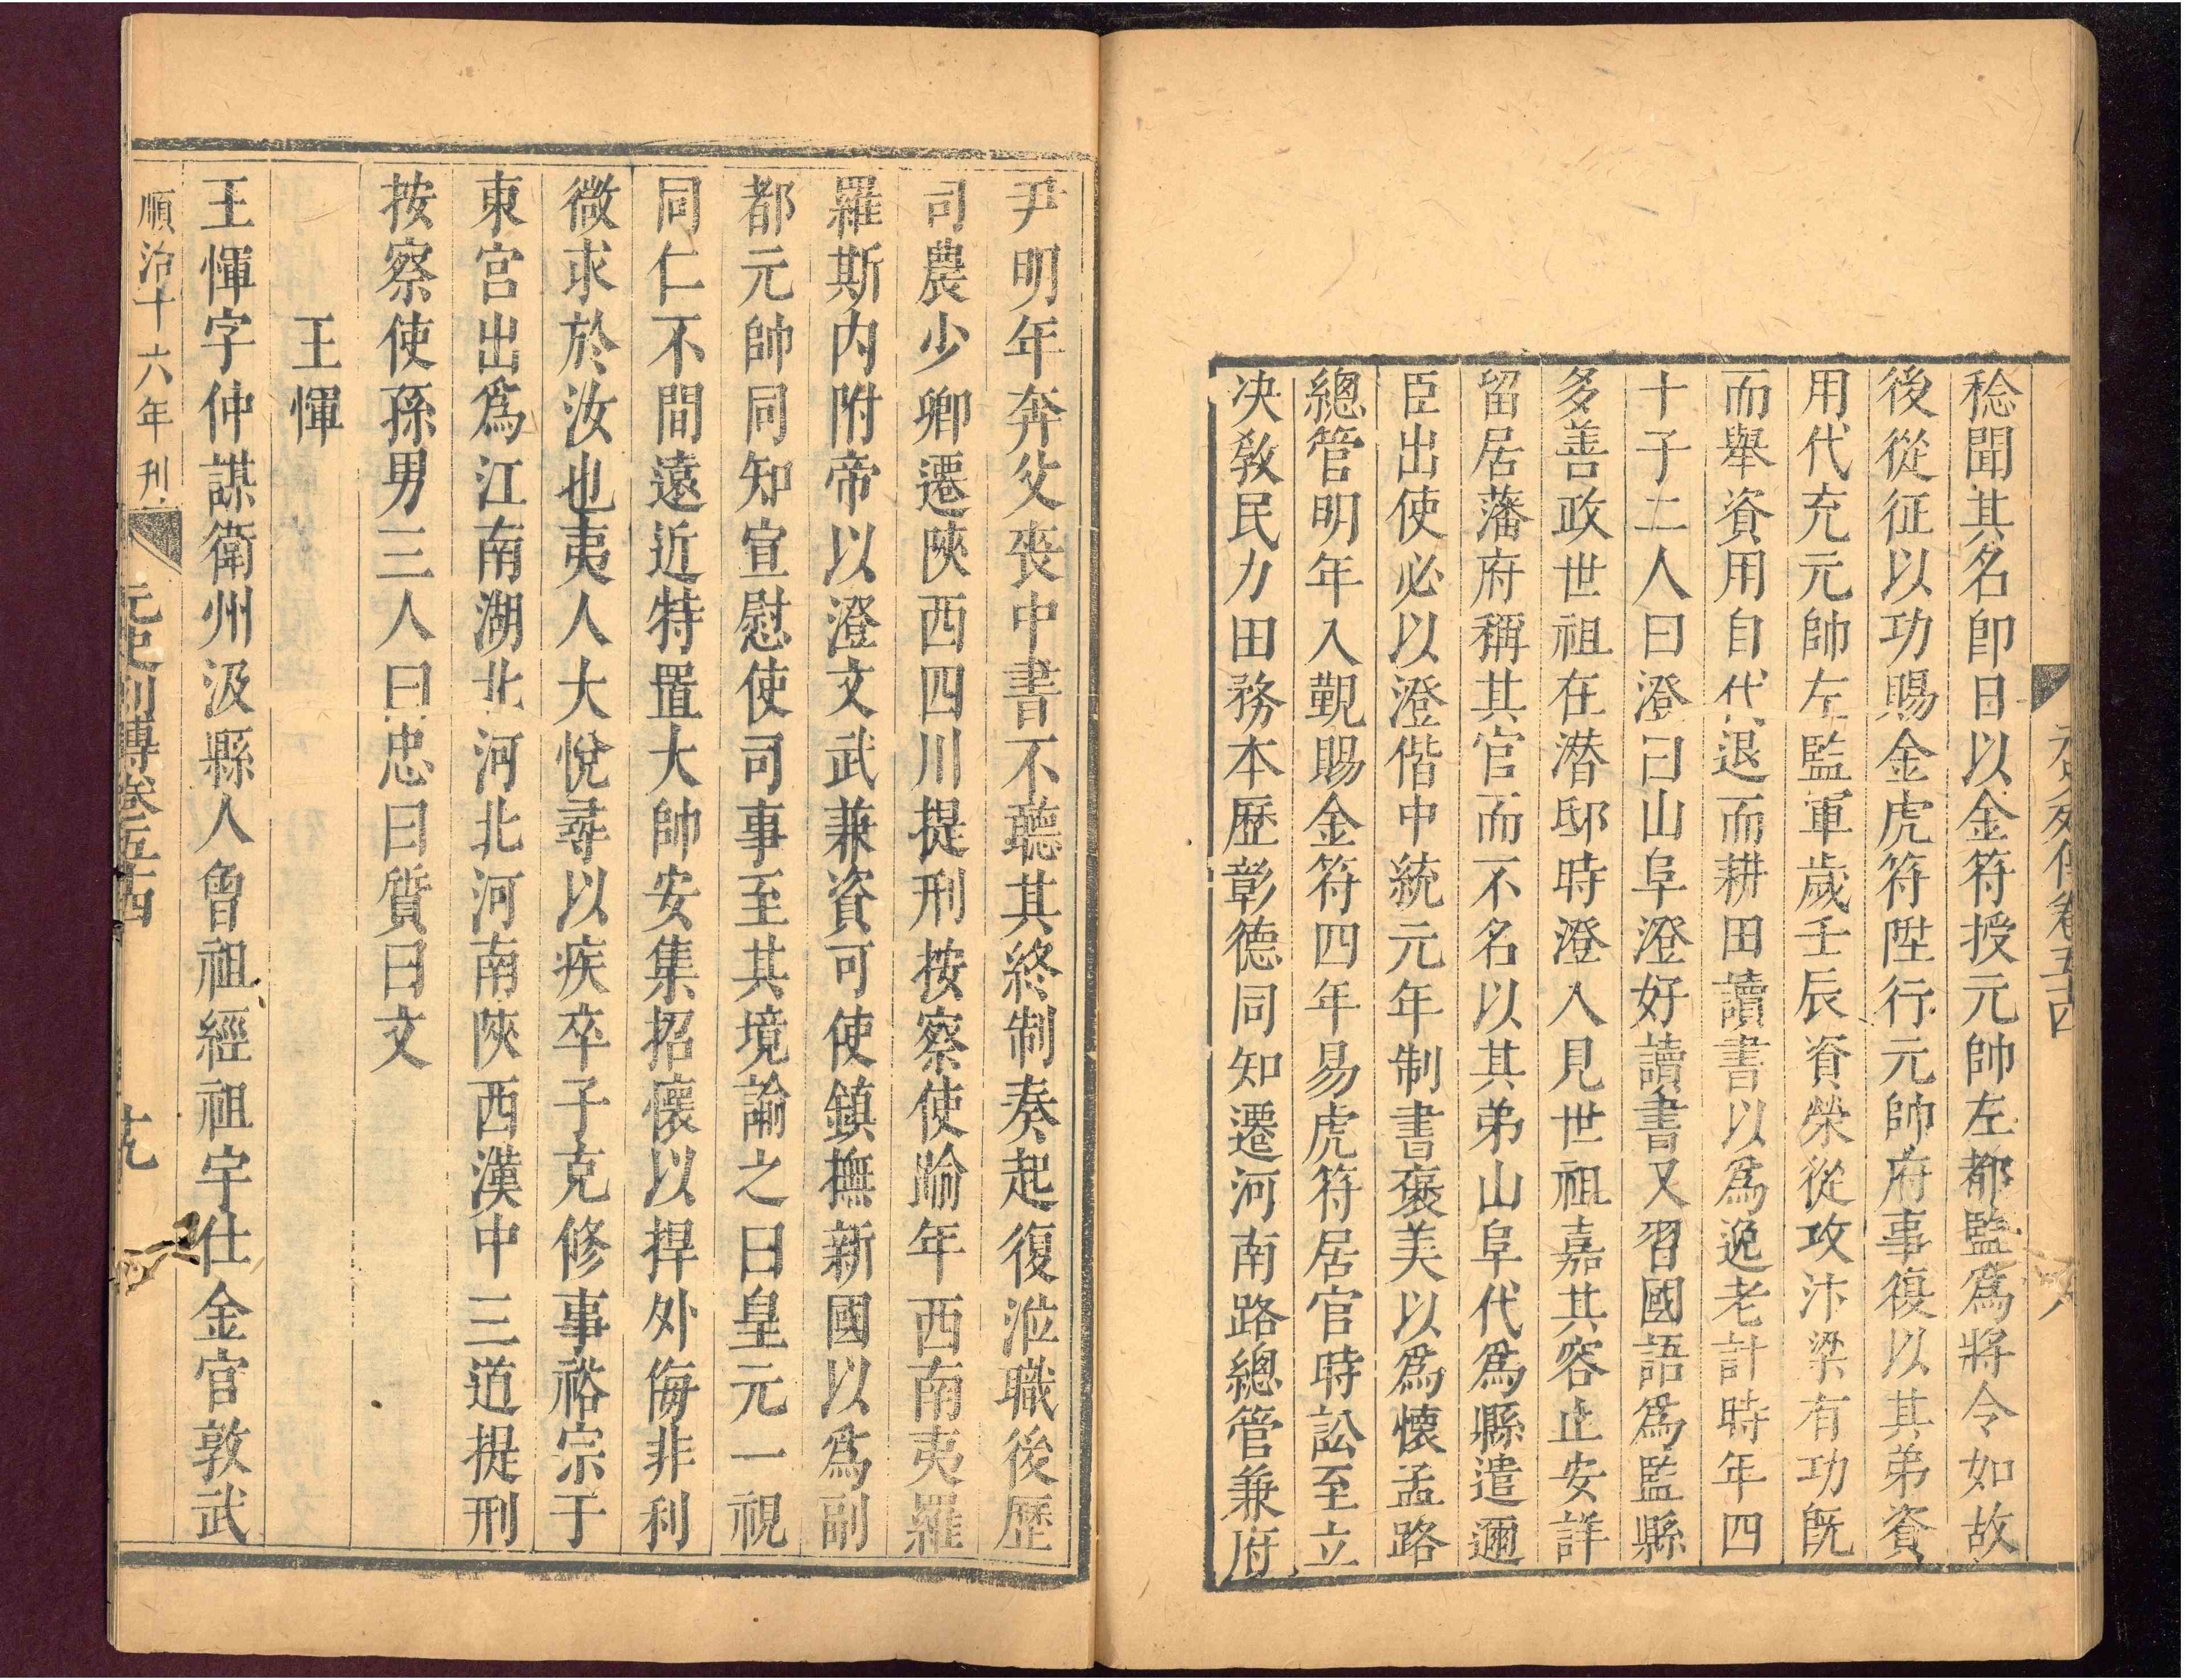 元史列傳卷五十四
八
稔聞其名即日以金符授元帥左都監爲將令如故
後從征以功賜金虎符陞行元帥府事復以其弟資
用代充元帥左監軍歲壬辰資榮從攻汴梁有功既
而舉資用自代退而耕田讀書以爲逸老計時年四
十子二人曰澄曰山阜澄好讀書又習國語爲監縣
多善政世祖在潜邸時澄入見世祖嘉其容止安詳
留居藩府稱其官而不名以其弟山阜代爲縣遣邇
臣出使必以澄偕中統元年制書褒美以爲懷孟路
總管明年入覲賜金符四年易虎符居官時訟至立
决敎民力田務本歷彰德同知遷河南路總管兼府
尹明年奔父喪中書不聽其終制奏起復涖職後歷
司農少卿遷陝西四川提刑按察使踰年西南夷羅
羅斯内附帝以澄文武兼資可使鎮撫新國以爲副
都元帥同知宣慰使司事至其境諭之曰皇元一視
同仁不間遠近特置大帥安集招懷以捍外侮非利
微求於汝也夷人大悅尋以疾卒子克修事裕宗于
東宮出爲江南湖北河北河南陝西漢中三道提刑
按察使孫男三人曰忠曰質曰文
王惲
王惲字仲謀衛州汲縣人曾祖經祖宇仕金官敦武
順治十六年刊
元史列傳卷五十四
十九